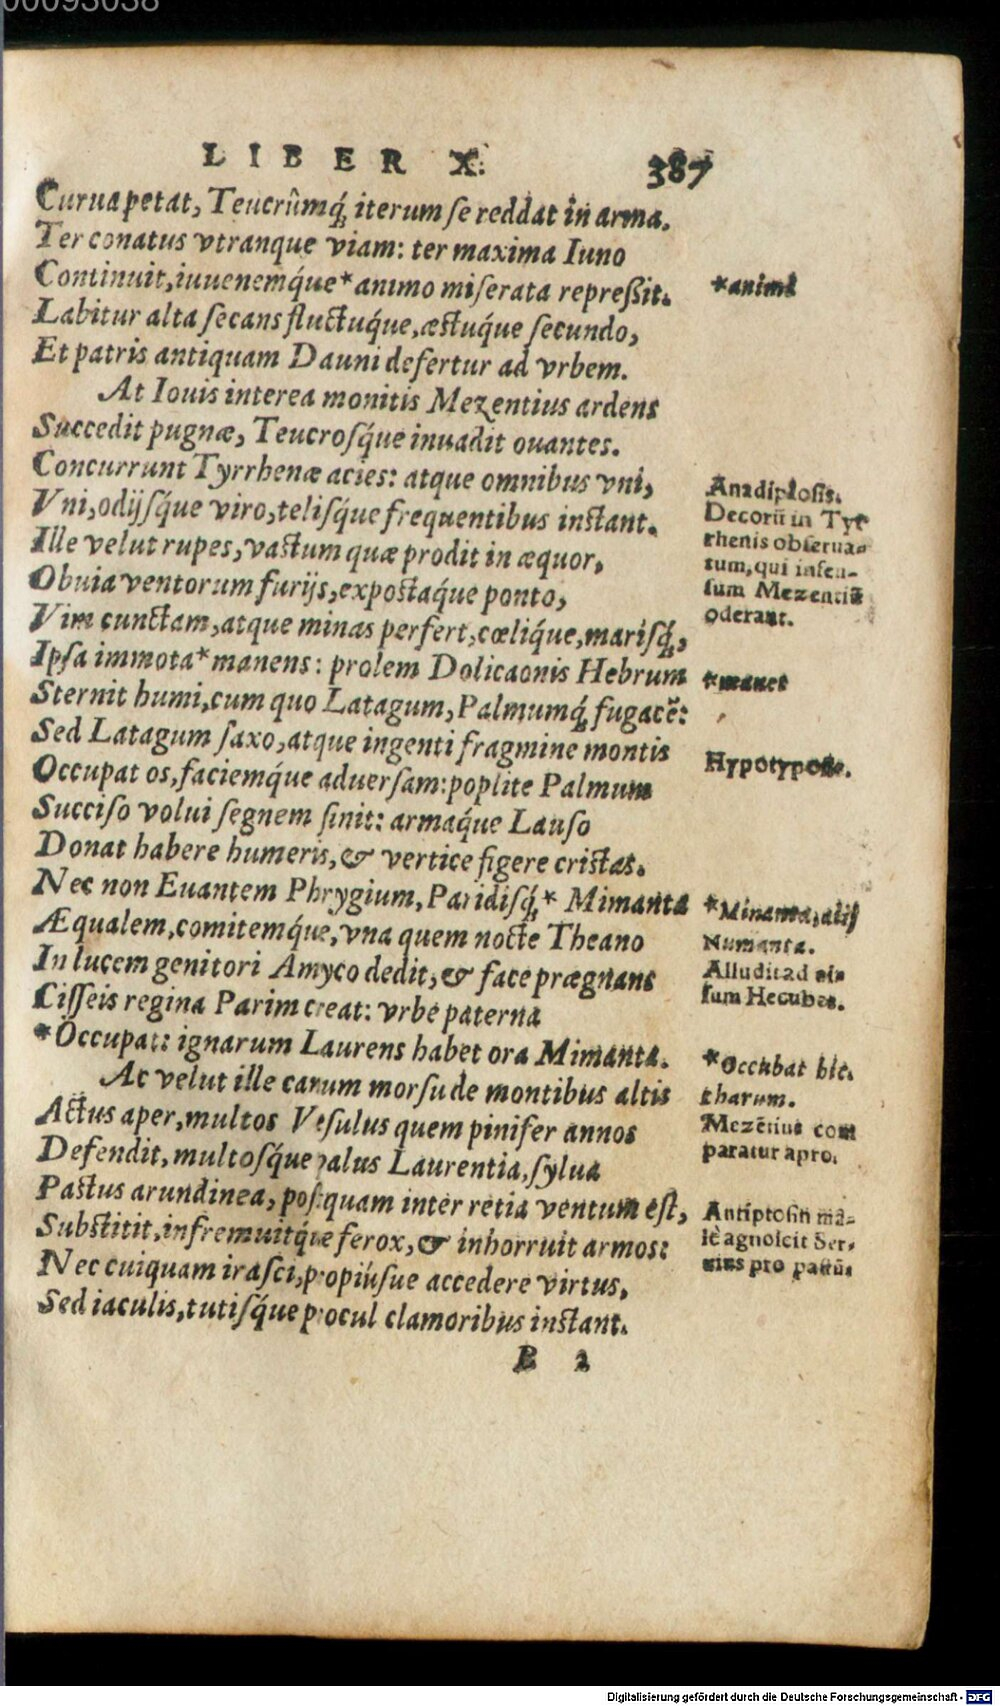 00093038
LIBER X. 387
Curua petat, Teucrûmq́; iterum se reddat in arma.
Ter conatus vtranque viam: ter maxima Iuno
Continuit, iuuenemq́ue * animo miserata repreßit.
Labitur alta secans fluctuq́ue, æstuq́ue secundo,
Et patris antiquam Dauni defertur ad vrbem.
At Iouis interea monitis Mezentius ardens
Succedit pugnæ, Teucrosq́ue inuadit ouantes.
Concurrunt Tyrrhenæ acies: atque omnibus vni,
Vni, odijsq́ue viro, telisq́ue frequentibus instant.
Ille velut rupes, vastum quæ prodit in æquor,
Obuia ventorum furijs, expostaq́ue ponto,
Vim cunctam, atque minas perfert, cœliq́ue, marisq́;,
Ipsa immota * manens: prolem Dolicaonis Hebrum
Sternit humi, cum quo Latagum, Palmumq́; fugacē:
Sed Latagum saxo, atque ingenti fragmine montis
Occupat os, faciemq́ue aduersam: poplite Palmum
Succiso volui segnem sinit: armaq́ue Lauso
Donat habere humeris, & vertice figere cristas.
Nec non Euantem Phrygium, Paridisq́; * Mimanta
Æqualem, comitemq́ue, vna quem nocte Theano
In lucem genitori Amyco dedit, & face prægnans
Cisseis regina Parim creat: vrbe paterna
* Occupat: ignarum Laurens habet ora Mimanta.
Ac velut ille canum morsu de montibus altis
Actus aper, multos Vesulus quem pinifer annos
Defendit, multosq́ue palus Laurentia, sylua
Pastus arundinea, postquam inter retia ventum est,
Substitit, infremuitq́ue ferox, & inhorruit armos:
Nec cuiquam irasci, propiúsue accedere virtus,
Sed iaculis, tutisq́ue procul clamoribus instant.
B 2
* animi
Anadiplosis.
Decorū in Tyr
rhenis obserua-
tum, qui infen-
sum Mezentiū
oderant.
* manet
Hypotyposis.
* Minanta, alij
Numanta.
Alludit ad
sum Hecubes.
* Occubat
tharum.
Mezētius com
paratur apro.
Antiptosin ma-
lè agnoscit Ser-
uius pro pastū
Digitalisierung gefördert durch die Deutsche Forschungsgemeinschaft - DFG